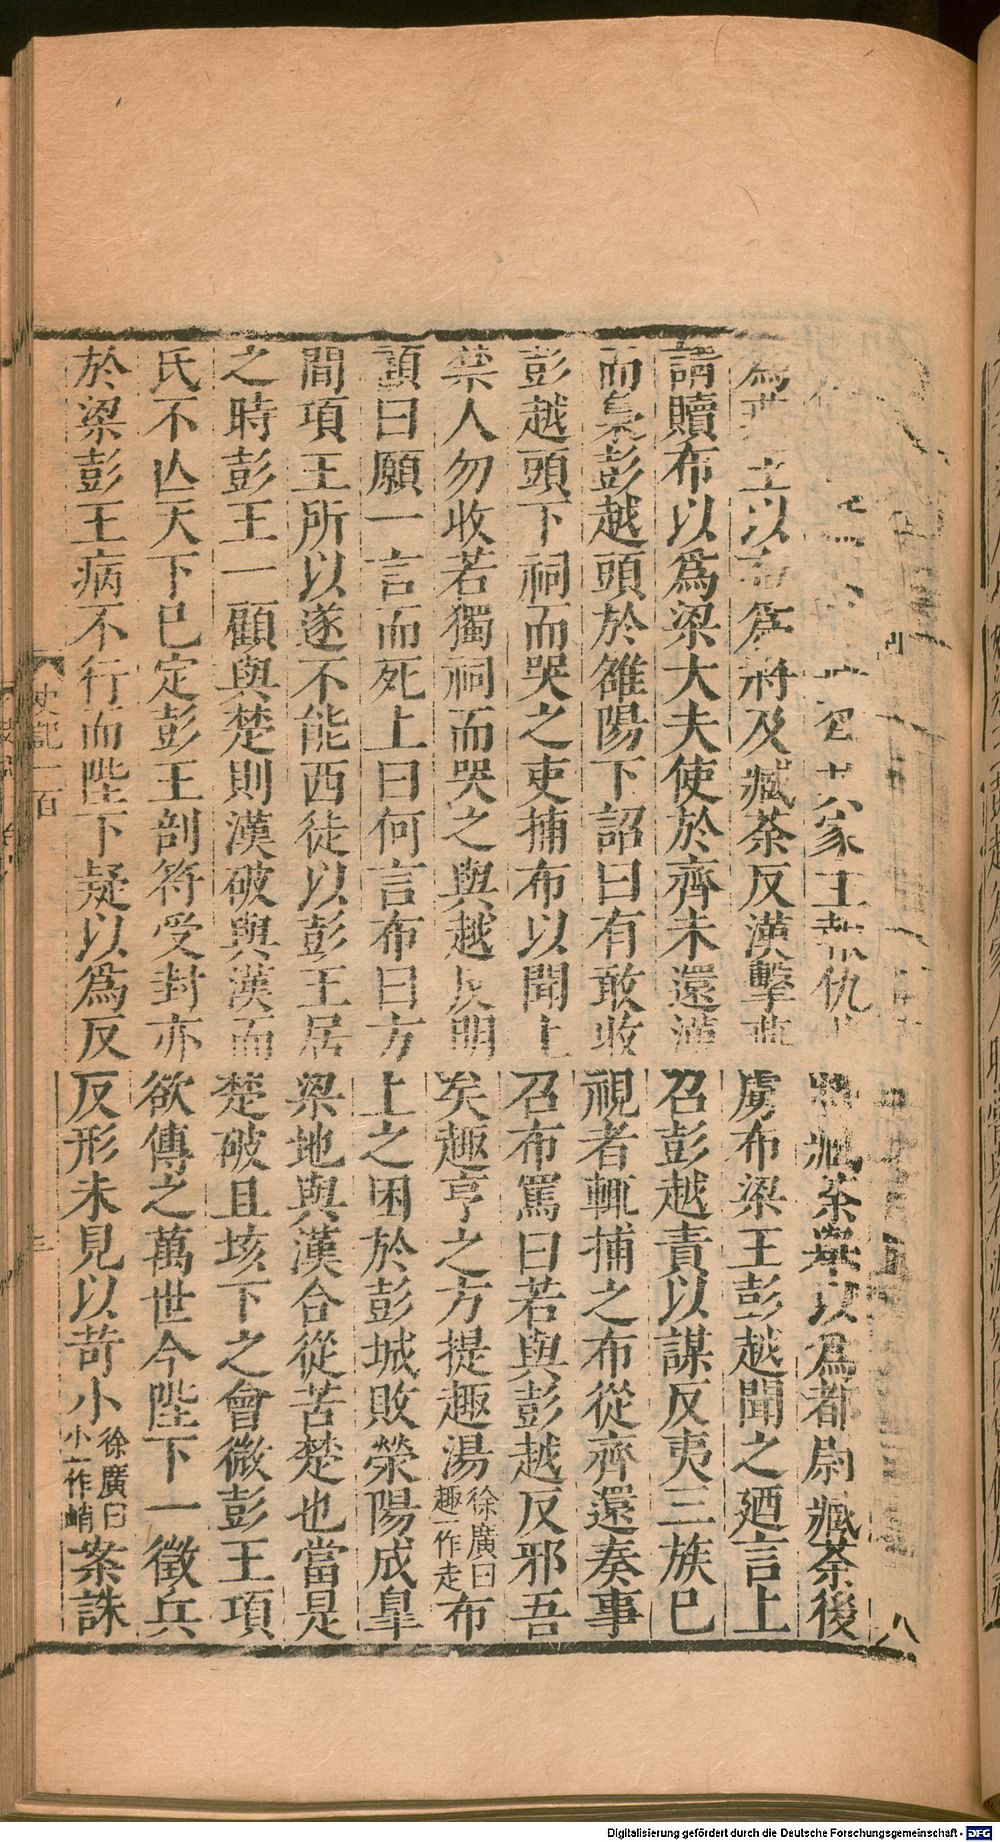 家王 仇 臧荼舉以為都尉臧荼後
為 王以 為將及臧荼反漢擊 虜布梁王彭越聞之廼言上
請贖布以爲梁大夫使於齊未還漢召彭越責以謀反夷三族已
而梟彭越頭於雒陽下詔曰有敢收視者輒捕之布從齊還奏事
彭越頭下祠而哭之吏捕布以聞上召布罵曰若與彭越反邪吾
禁人勿收若獨祠而哭之與越反明矣趣亨之方提趣湯徐廣曰趣一作走布
顧曰願一言而死上曰何言布曰方上之困於彭城敗滎陽成臯
間項王所以遂不能西徒以彭王居梁地與漢合從苦楚也當是
之時彭王一顧與楚則漢破與漢而楚破且垓下之會微彭王項
氏不亾天下已定彭王剖符受封亦欲傳之萬世今陛下一徵兵
於梁彭王病不行而陛下疑以爲反反形未見以苛小徐廣曰小一作峭案誅
史記一百
三
Digitalisierung gefördert durch die Deutsche Forschungsgemeinschaft - DFG